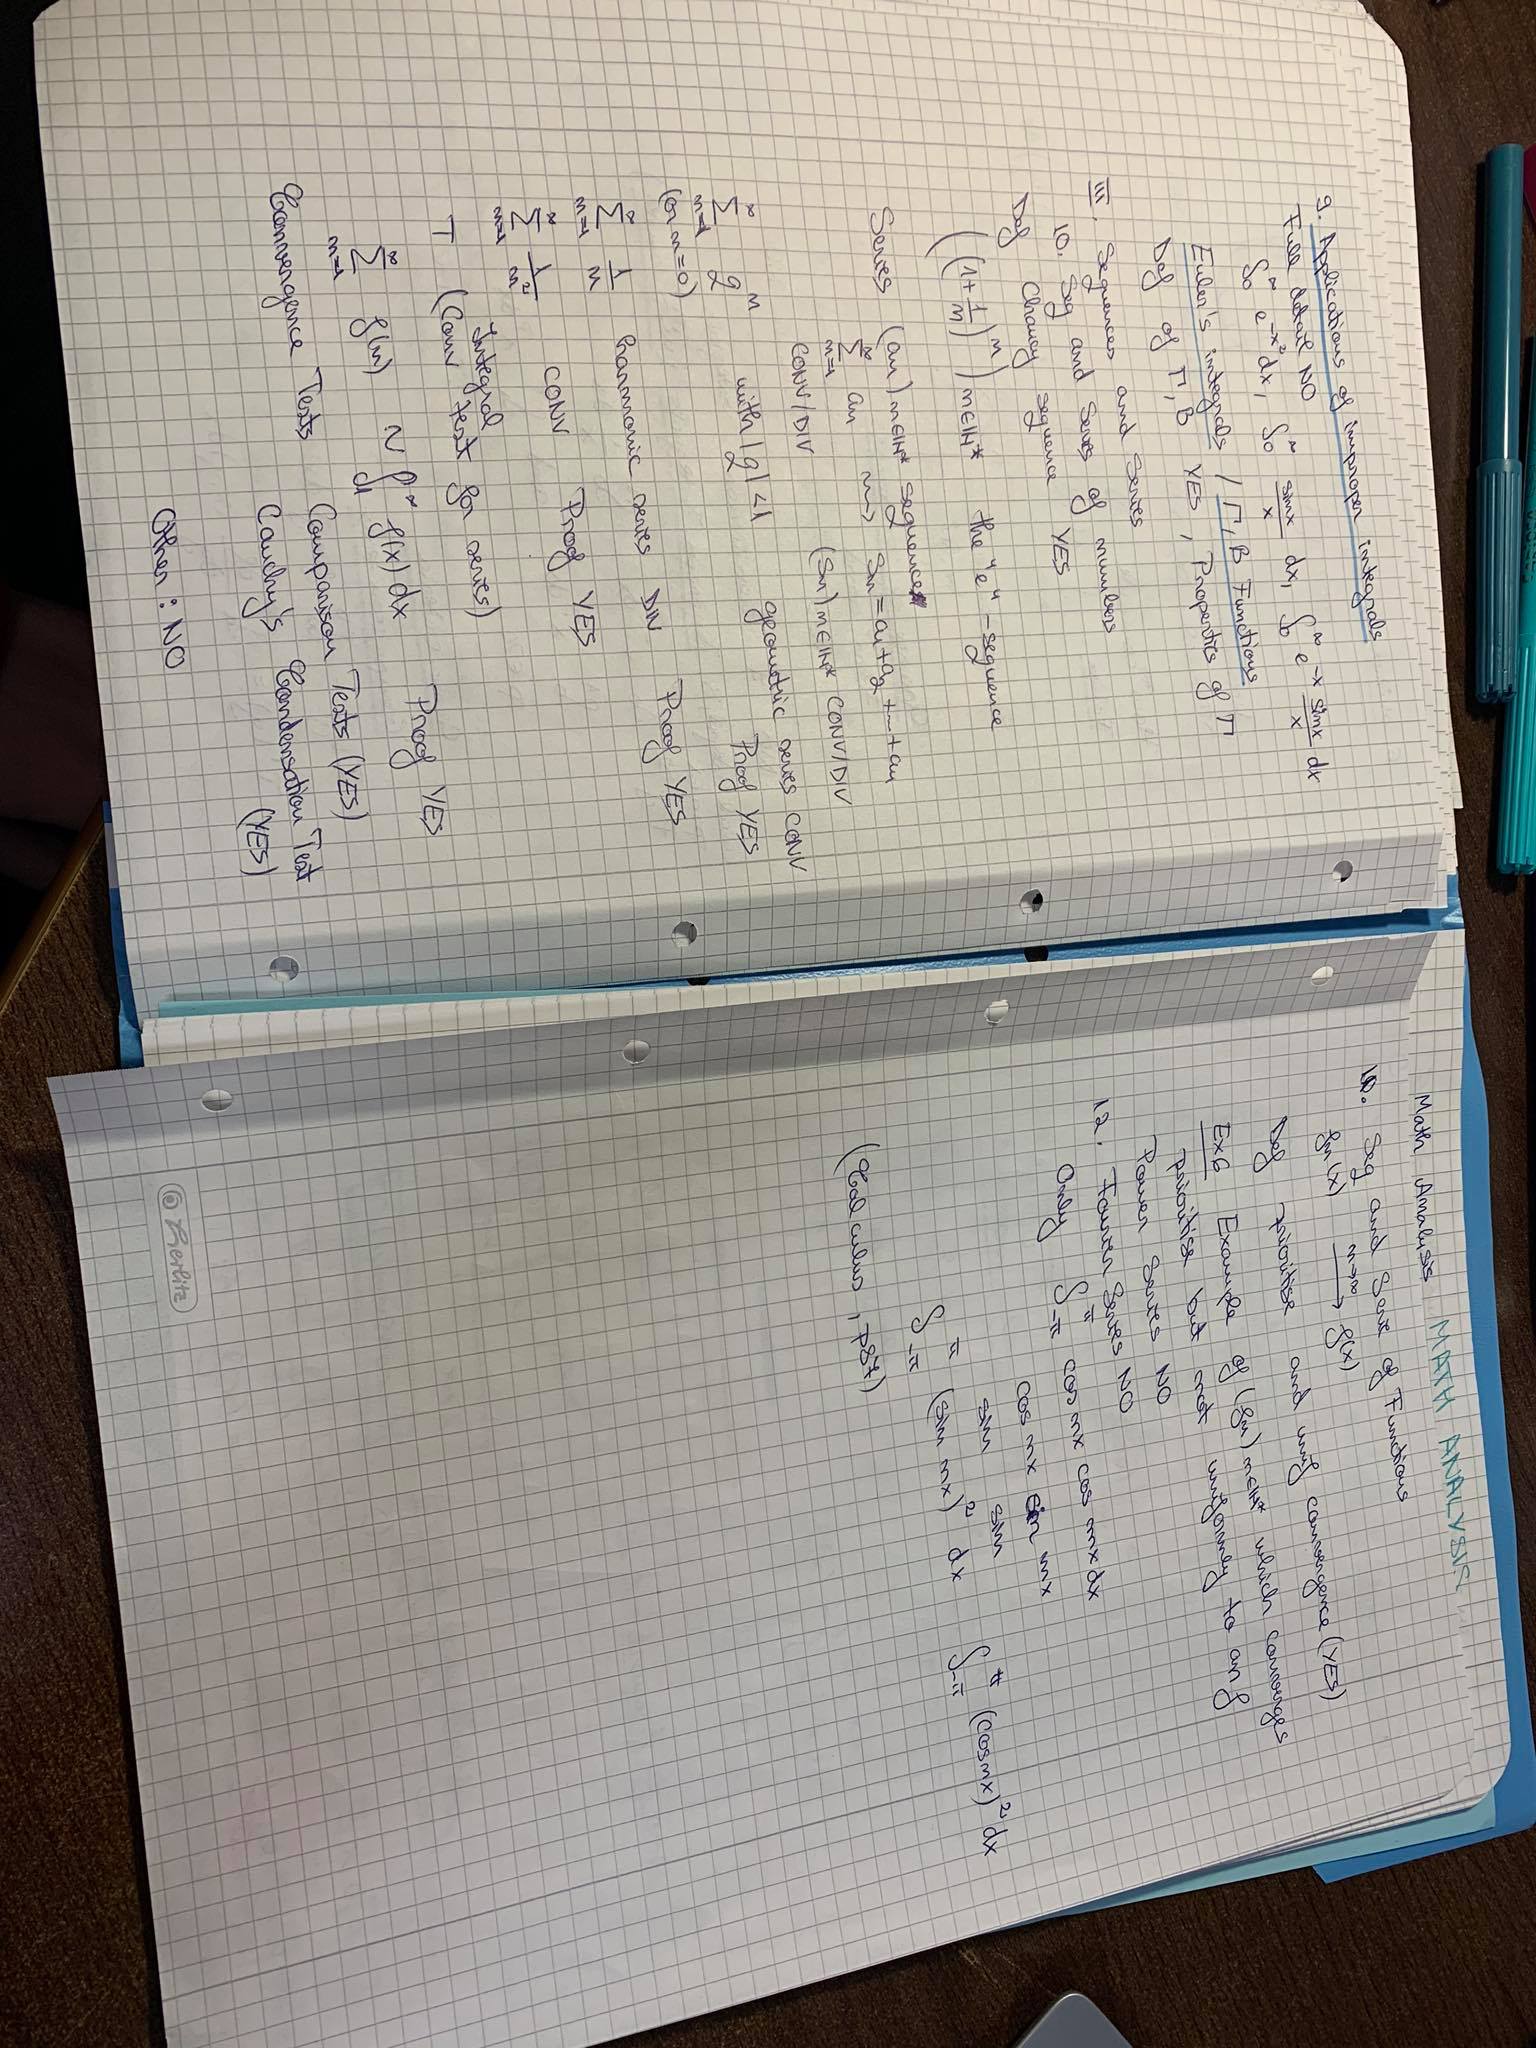 9. Applications of improper integrals
Full detail NO
∫₀^∞ e^-x² dx, ∫₀^∞ sinx/x dx, ∫₀^∞ e^-x sinx/x dx
Euler's integrals / Γ, B Functions
Def of Γ, B YES, Properties of Γ
III. Sequences and Series
10. Seq and Series of numbers
Def Chaucy sequence YES
((1+1/n)^n) n∈ℕ* the "e" - sequence
Series (an) n∈ℕ* sequence
∑_{n=1}^∞ an ~> Sn = a1+a2+...+an
CONV/DIV (Sn) n∈ℕ* CONV/DIV
∑_{n=1}^∞ q^n with |q|<1 geometric series CONV
(or n=0) Proof YES
∑_{n=1}^∞ 1/n harmonic series DIV Proof YES
∑_{n=1}^∞ 1/n² CONV Proof YES
Integral
T (Conv test for series)
∑_{n=1}^∞ f(n) ~ ∫₁^∞ f(x) dx Proof YES
Convergence Tests Comparison Tests (YES)
Cauchy's Condensation Test
(YES)
Other: NO
Math Analysis MATH ANALYSIS
Seq and Serie of Functions
fn(x) n→∞ → f(x)
Def prioritise and unif convergence (YES)
Ex6 Example of (fn) n∈ℕ* which converges
prioritise but not uniformly to an f
Power Series NO
12. Fourier Series NO
Only ∫_{-π}^π cos nx cos mx dx
cos nx sin mx
sin sin
∫_{-π}^π (sin nx)² dx ∫_{-π}^π (cos nx)² dx
(Calculus, p87)
herlitz